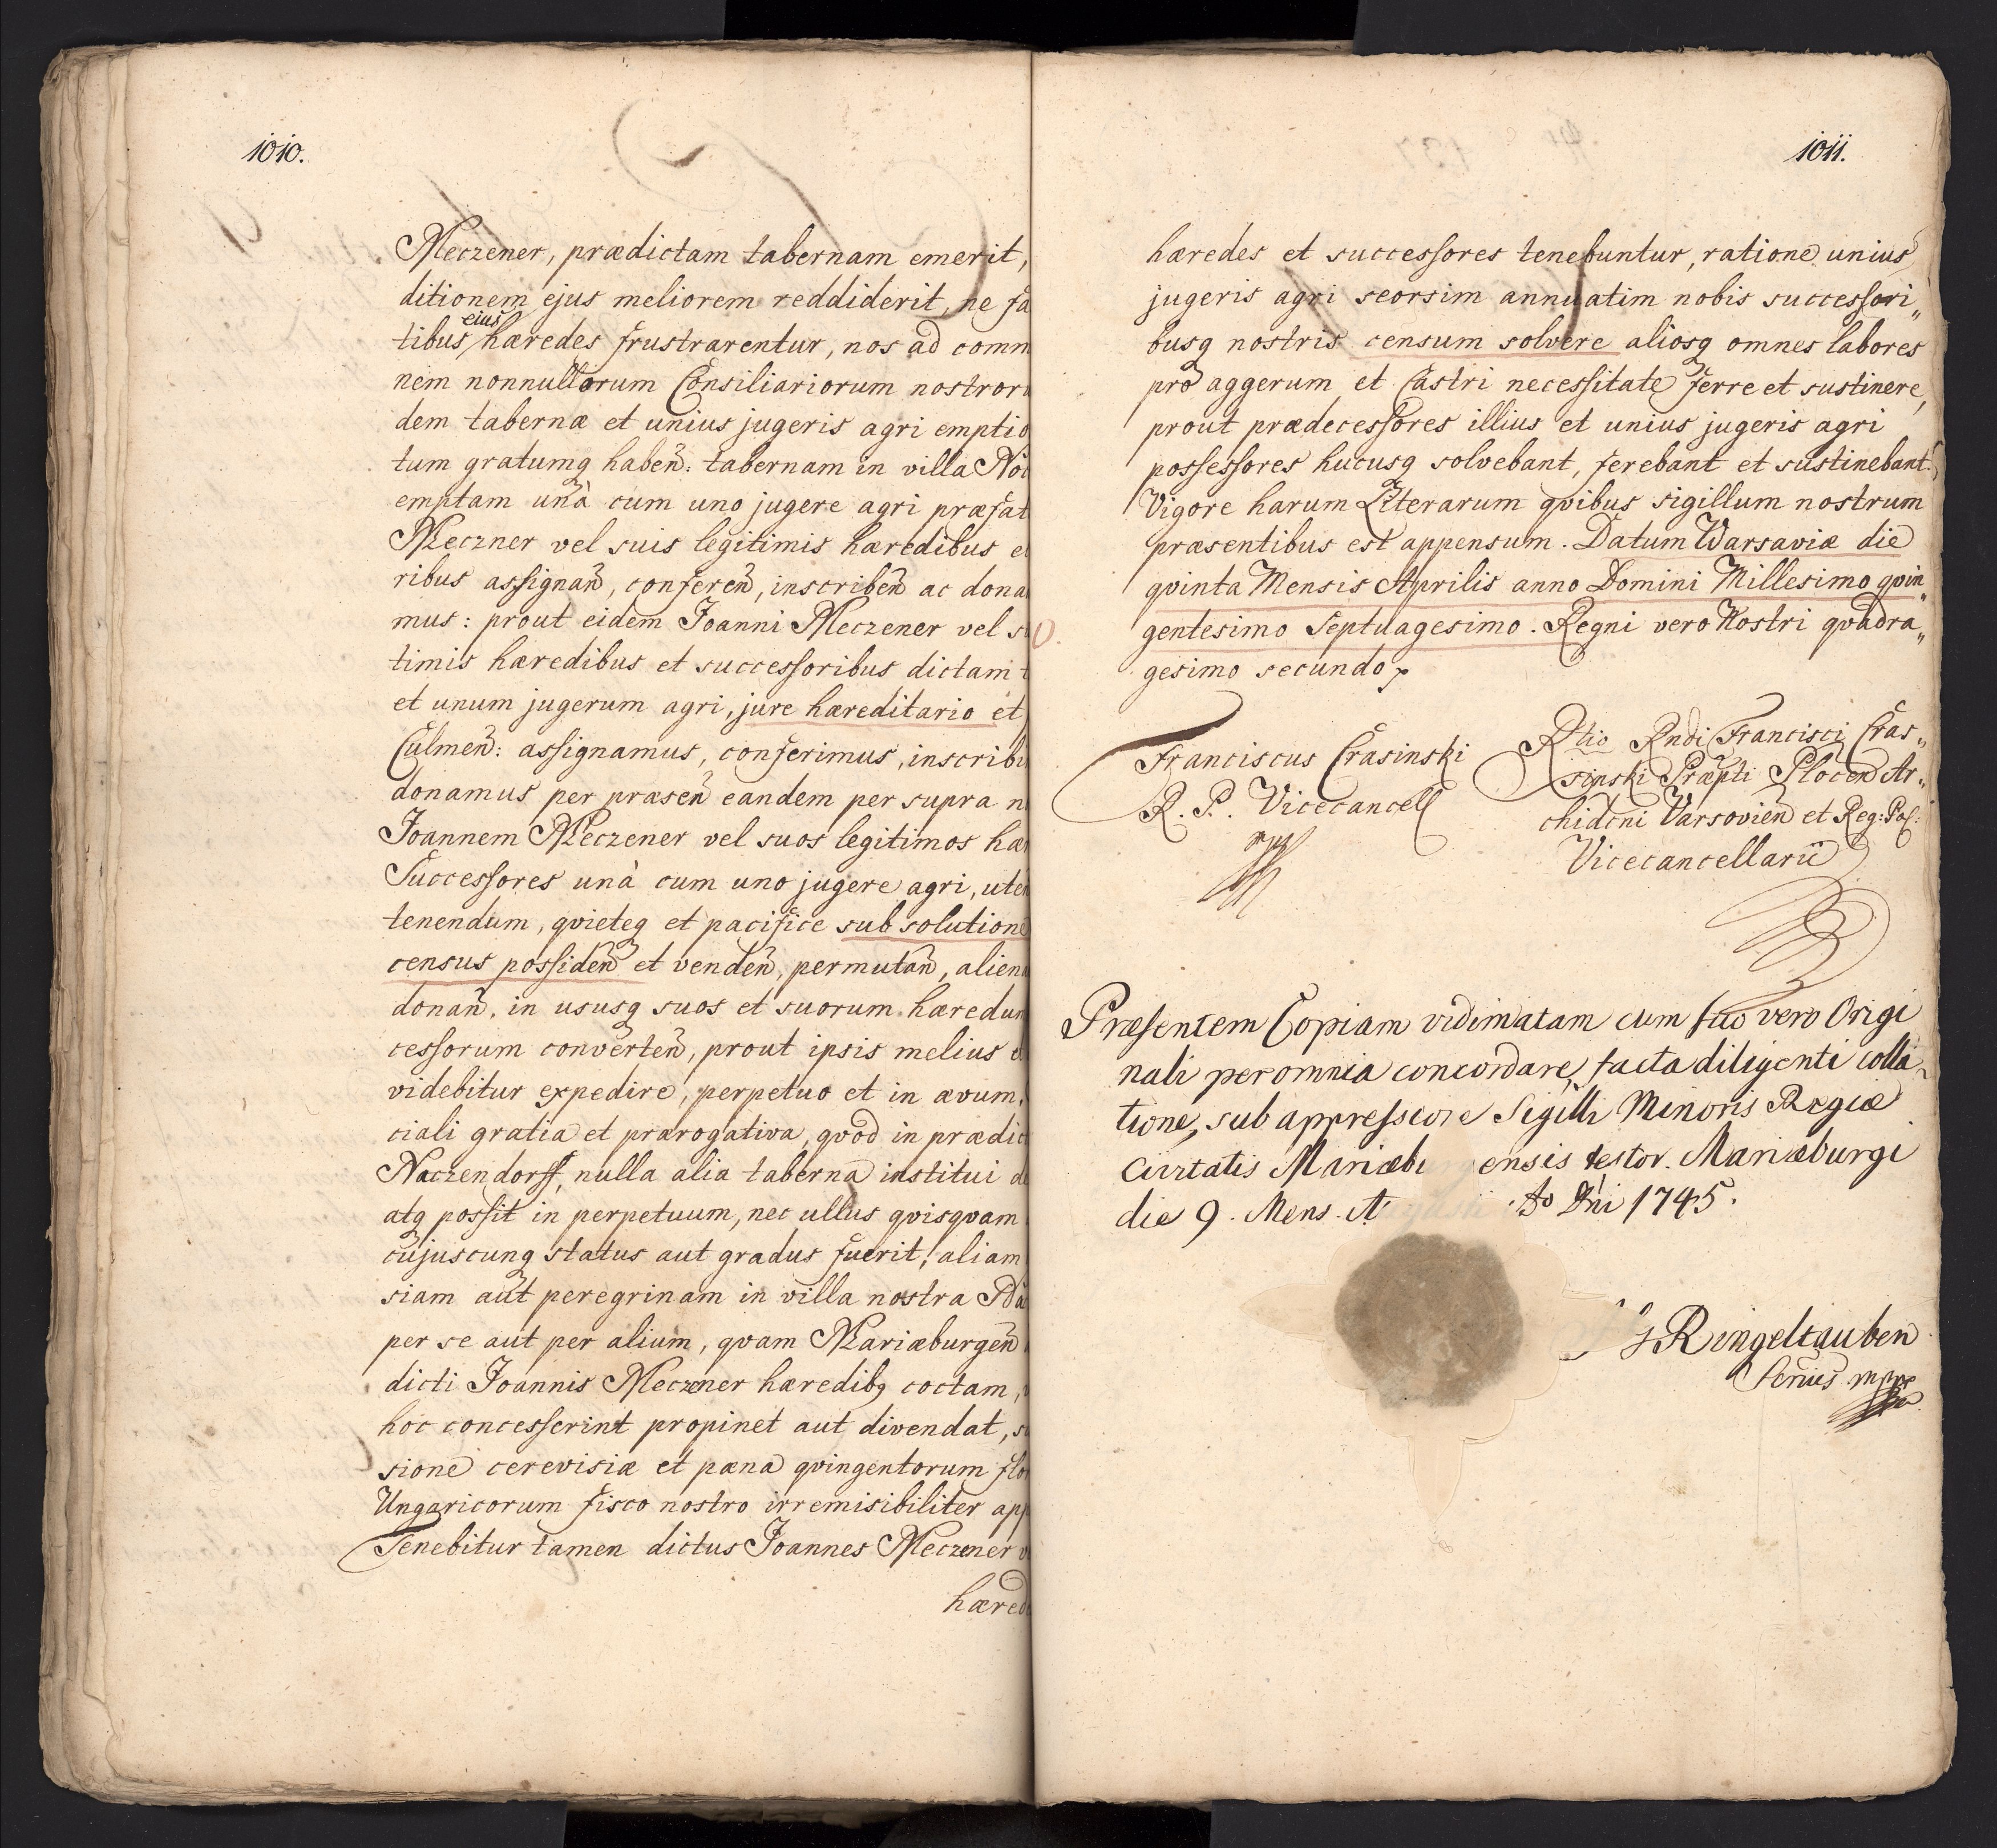 1010.
Meczener, prædictam tabernam emerit,
ditionem ejus meliorem reddiderit, ne fa
eius
tibus hæredes frustrarentur, nos ad comm
nem nonnullorum Consiliariorum nostror
dem tabernæ et unius jugeris agri emptio
tum gratumq haben̄: tabernam in villa
emptam unà cum uno jugere agri præfat
Meczner vel suis legitimis hæredibus e
ribus assignan̄, conferen̄, inscriben̄ ac dona
mus: prout eidem Joanni Meczener vel s
timis hæredibus et successoribus dictam t
et unum jugerum agri, jure hæreditario et
Culmen̄: assignamus, conferimus, inscribi
donamus per præsen̄ eandem per supra n
Joannem Meczener vel suos legitimos hæ
Successores unà cum uno jugere agri, ute
tenendum, qvieteq et pacifice sub solutione
census possiden̄ et venden̄, permutan̄, alien
donan̄, in ususq suos et suorum hæredum
cessorum converten̄, prout ipsis melius e
videbitur expedire, perpetuo et in ævum.
ciali gratia et prærogativa, qvod in prædic
Naczendorff, nulla alia taberna institui d
atq possit in perpetuum, nec ullus qvisqvam
cujuscunq status aut gradus fuerit, aliam
siam aut peregrinam in villa nostra
per se aut per alium, qvam Mariæburgen̄
dicti Joannis Meczener hæredibq coctam,
hoc concesserint propinet aut divendat, s
sione cerevisiæ et pæna qvingentorum flo
Ungaricorum fisco nostro irremisibiliter app
Tenebitur tamen dictus Joannes Meczener v
hærede
1011.
hæredes et successores tenebuntur, ratione unius
jugeris agri seorsim annuatim nobis successori„
busq nostris censum solvere aliosq omnes labores
pro aggerum et Castri necessitate ferre et sustinere,
prout prædecessores illius et unius jugeris agri
possessores hucusq solvebant, ferebant et sustinebant.
Vigore harum Literarum qvibus sigillum nostrum
præsentibus est appensum. Datum Warsaviæ die
qvinta Mensis Aprilis anno Domini Millesimo qvin„
gentesimo Septuagesimo. Regni vero Nostri qvadra„
gesimo secundo
Franciscus Crasinski
R. P. Vicecancell
mpp
Rtio Rndi Francisci Cras„
sinski Præpti Plocen̄ Ar„
chidcni Varsovien̄ et Reg: Pol:
Vicecancellarii
Præsentem Copiam vidimatam cum suo vero Origi
nali per omnia concordare, facta diligenti colla„
tione, sub appressione Sigilli Minoris Regiæ
Civitatis Mariæbu ensis testor. Mariæburgi
die 9. Mens. A Ao Dni 1745.
Ringeltauben
mppr